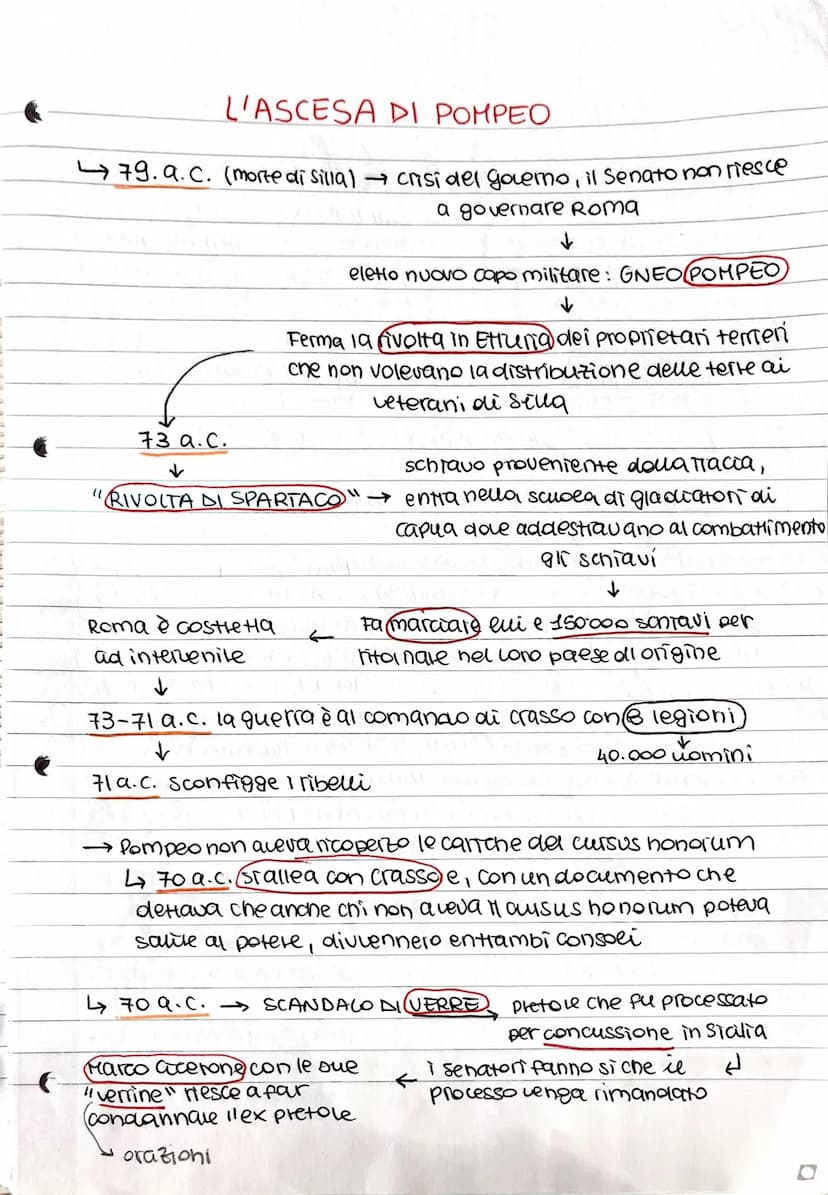 L'ASCESA DI POMPEO
↳ 79. a.C. (morte di Silla) → crisi del governo, il Senato non riesce
a governare Roma
↓
eletto nuovo capo militare: GNEO POMPEO
↓
Ferma la rivolta in Etruria dei proprietari terreri
che non volevano la distribuzione delle terre ai
veterani di Silla
73 a.C.
↓
"RIVOLTA DI SPARTACO" → schiavo proveniente dalla Tracia,
entra nella scuola di gladiatori di
Capua dove addestravano al combattimento
gli schiavi
↓
Fa marciare lui e 150'000 schiavi per
ritornare nel loro paese di origine
←
Roma è costretta
ad intervenile
↓
73-71 a.C. la guerra è al comando di Crasso con 8 legioni
↓
40.000 uomini
↓
71 a.C. sconfigge i ribelli
→ Pompeo non aveva ricoperto le cariche del cursus honorum
↳ 70 a.C. si allea con Crasso e, con un documento che
dettava che anche chi non aveva il cursus honorum poteva
salire al potere, divennero entrambi consoli
↳ 70 a.C. → SCANDALO DI VERRE → pretore che fu processato
per concussione in Sicilia
i senatori fanno si che il
processo venga rimandato
←
Marco Cicerone con le sue
"verrine" riesce a far
condannare l'ex pretore
orazioni